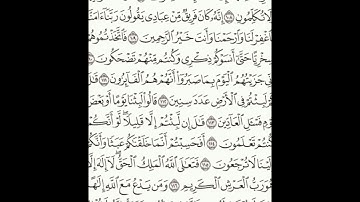 وَلَا تُكَلِّمُونِ ١٠٨ إِنَّهُۥ كَانَ فَرِيقٌ مِّنْ عِبَادِى يَقُولُونَ رَبَّنَآ ءَامَنَّا
فَٱغْفِرْ لَنَا وَٱرْحَمْنَا وَأَنتَ خَيْرُ ٱلرَّٰحِمِينَ ١٠٩ فَٱتَّخَذْتُمُوهُمْ
سِخْرِيًّا حَتَّىٰٓ أَنسَوْكُمْ ذِكْرِى وَكُنتُم مِّنْهُمْ تَضْحَكُونَ ١١٠
إِنِّى جَزَيْتُهُمُ ٱلْيَوْمَ بِمَا صَبَرُوٓا۟ أَنَّهُمْ هُمُ ٱلْفَآئِزُونَ ١١١
لَبِثْتُمْ فِى ٱلْأَرْضِ عَدَدَ سِنِينَ ١١٢ قَالُوا۟ لَبِثْنَا يَوْمًا أَوْ بَعْضَ
يَوْمٍ فَسْـَٔلِ ٱلْعَآدِّينَ ١١٣ قَٰلَ إِن لَّبِثْتُمْ إِلَّا قَلِيلًا لَّوْ أَنَّكُمْ
كُنتُمْ تَعْلَمُونَ ١١٤ أَفَحَسِبْتُمْ أَنَّمَا خَلَقْنَٰكُمْ عَبَثًا وَأَنَّكُمْ
إِلَيْنَا لَا تُرْجَعُونَ ١١٥ فَتَعَٰلَى ٱللَّهُ ٱلْمَلِكُ ٱلْحَقُّ لَآ إِلَٰهَ إِلَّا
هُوَ رَبُّ ٱلْعَرْشِ ٱلْكَرِيمِ ١١٦ وَمَن يَدْعُ مَعَ ٱللَّهِ إِلَٰهًا